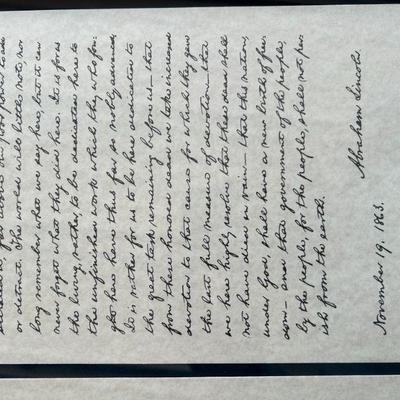 far above our poor power to add
or detract. The world will little note, nor
long remember what we say here, but it can
never forget what they did here. It is for us
the living, rather, to be dedicated here to
the unfinished work which they who fou-
ght here have thus far so nobly advanced.
It is rather for us to be here dedicated to
the great task remaining before us— that
from these honored dead we take increased
devotion to that cause for which they gave
the last full measure of devotion— that
we here highly resolve that these dead shall
not have died in vain— that this nation,
under God, shall have a new birth of free-
dom— and that government of the people,
by the people, for the people, shall not per-
ish from the earth.
Abraham Lincoln.
November 19, 1863.